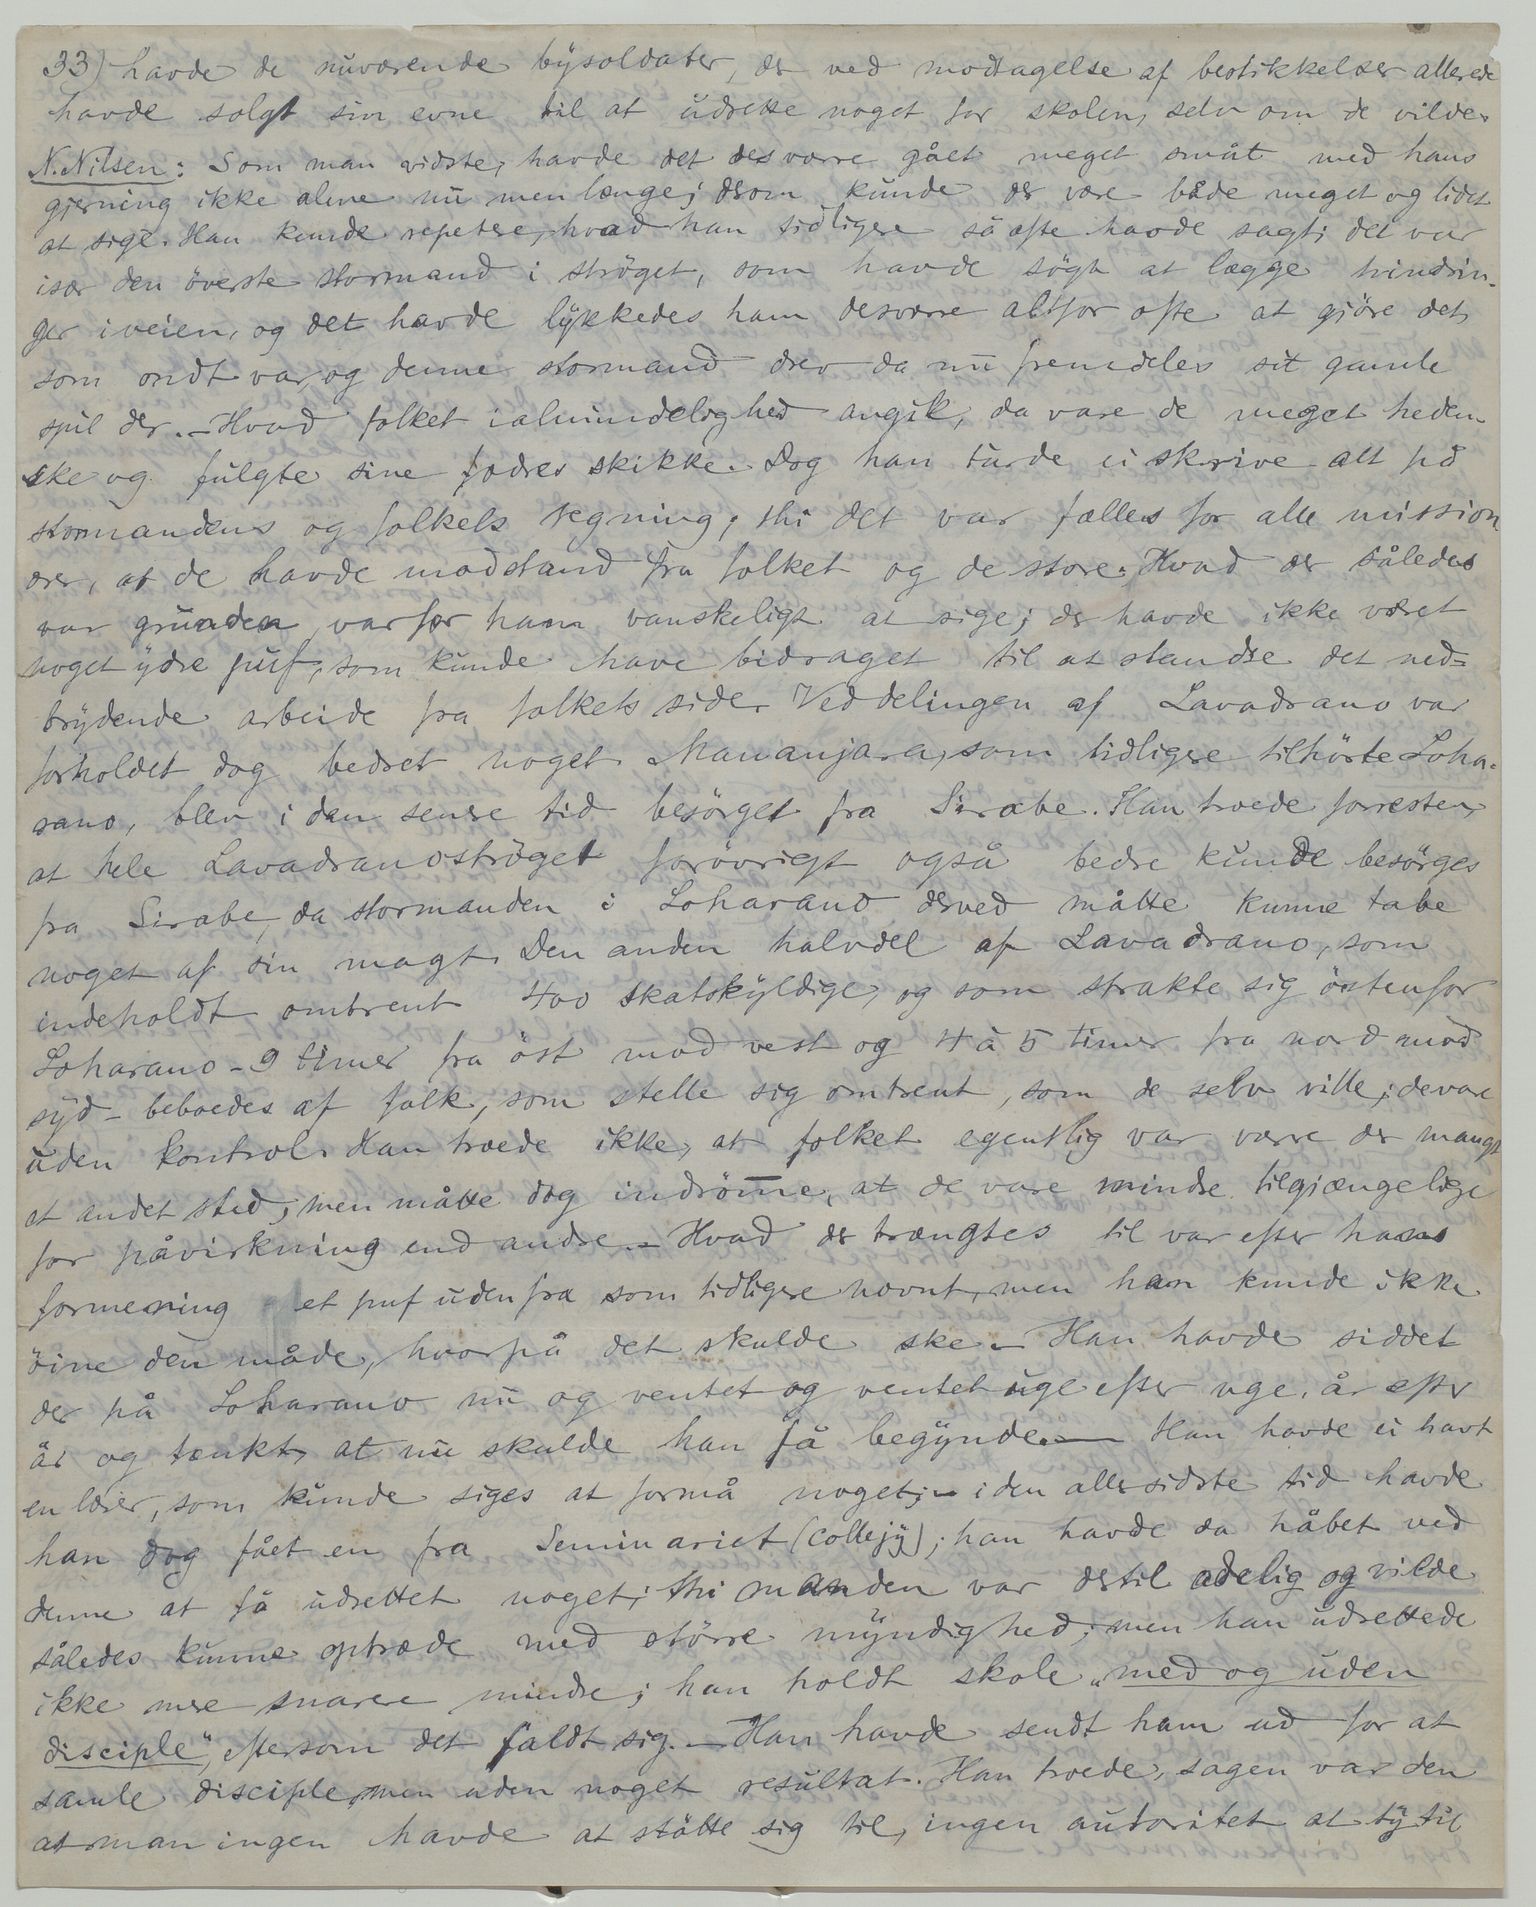 33) havde de nuværende bysoldater, der ved modtagelse af bestikkelser allerede
havde solgt sin evne til at udrette noget for skolen, selv om de vilde.
N. Nilsen: Som man vidste, havde det desværre gået meget småt med hans
gjerning ikke alene nu men længe; derom kunde der være både meget og lidet
at sige. Han kunde repetere, hvad han tidligere så ofte havde sagt; det var
især den överste stormand i ströget, som havde sögt at lægge hindrin-
ger i veien, og det havde lykkedes ham desværre altfor ofte at gjöre det,
som ondt var, og denne stormand drev da nu fremdeles sit gamle
spil der. - Hvad folket i almindelighed angik, da vare de meget heden-
ske og fulgte sine fædres skikke. Dog han turde ei skrive alt på
stormandens og folkets regning; thi det var fælles for alle mission
ærer, at de havde modstand fra folket og de store. Hvad der således
var grunden, var for ham vanskeligt at sige; der havde ikke været
noget ydre puf, som kunde have bidraget til at standse det ned=
brydende arbeide fra folkets side. Ved delingen af Lavadrano var
forholdet dog bedret noget. Mananjara, som tidligere tilhörte Loha-
rano, blev i den senere tid besörget fra Sirabe. Han troede forresten,
at hele Lavadranoströget forövrigt også bedre kunde besörges
fra Sirabe, da stormanden i Loharano derved måtte kunne tabe
noget af sin magt. Den anden halvdel af Lavadrano, som
indeholdt omtrent 400 skatskyldige, og som strakte sig östenfor
Loharano - 9 timer fra öst mod vest og 4 à 5 timer fra nord mod
syd - beboedes af folk, som stelte sig omtrent, som de selv ville; de vare
uden kontrol. Han troede ikke, at folket egentlig var værre der mangt
et andet sted, men måtte dog indrömme, at de vare mindre tilgjængelige
for påvirkning end andre. - Hvad der trængtes til var efter hans
formening et puf udenfra som tidligere nævnt, men han kunde ikke
öine den måde, hvorpå det skulde ske. - Han havde siddet
der på Loharano nu og ventet og ventet uge efter uge, år efter
år og tænkt, at nu skulde han få begynde. - Han havde ei havt
en lærer, som kunde siges at formå noget; - i den allersidste tid havde
han dog fået en fra Seminariet (collejy); han havde da håbet ved
denne at få udrettet noget; thi manden var dertil adelig og vilde
således kunne optræde med större myndighed; men han udrettede
ikke mere snarere mindre; han holdt skole „med og uden
disciple", eftersom det faldt sig. - Han havde sendt ham ud for at
samle disciple, men uden noget resultat. Han troede, sagen var den
at man ingen havde at stötte sig til, ingen autoritet at ty til